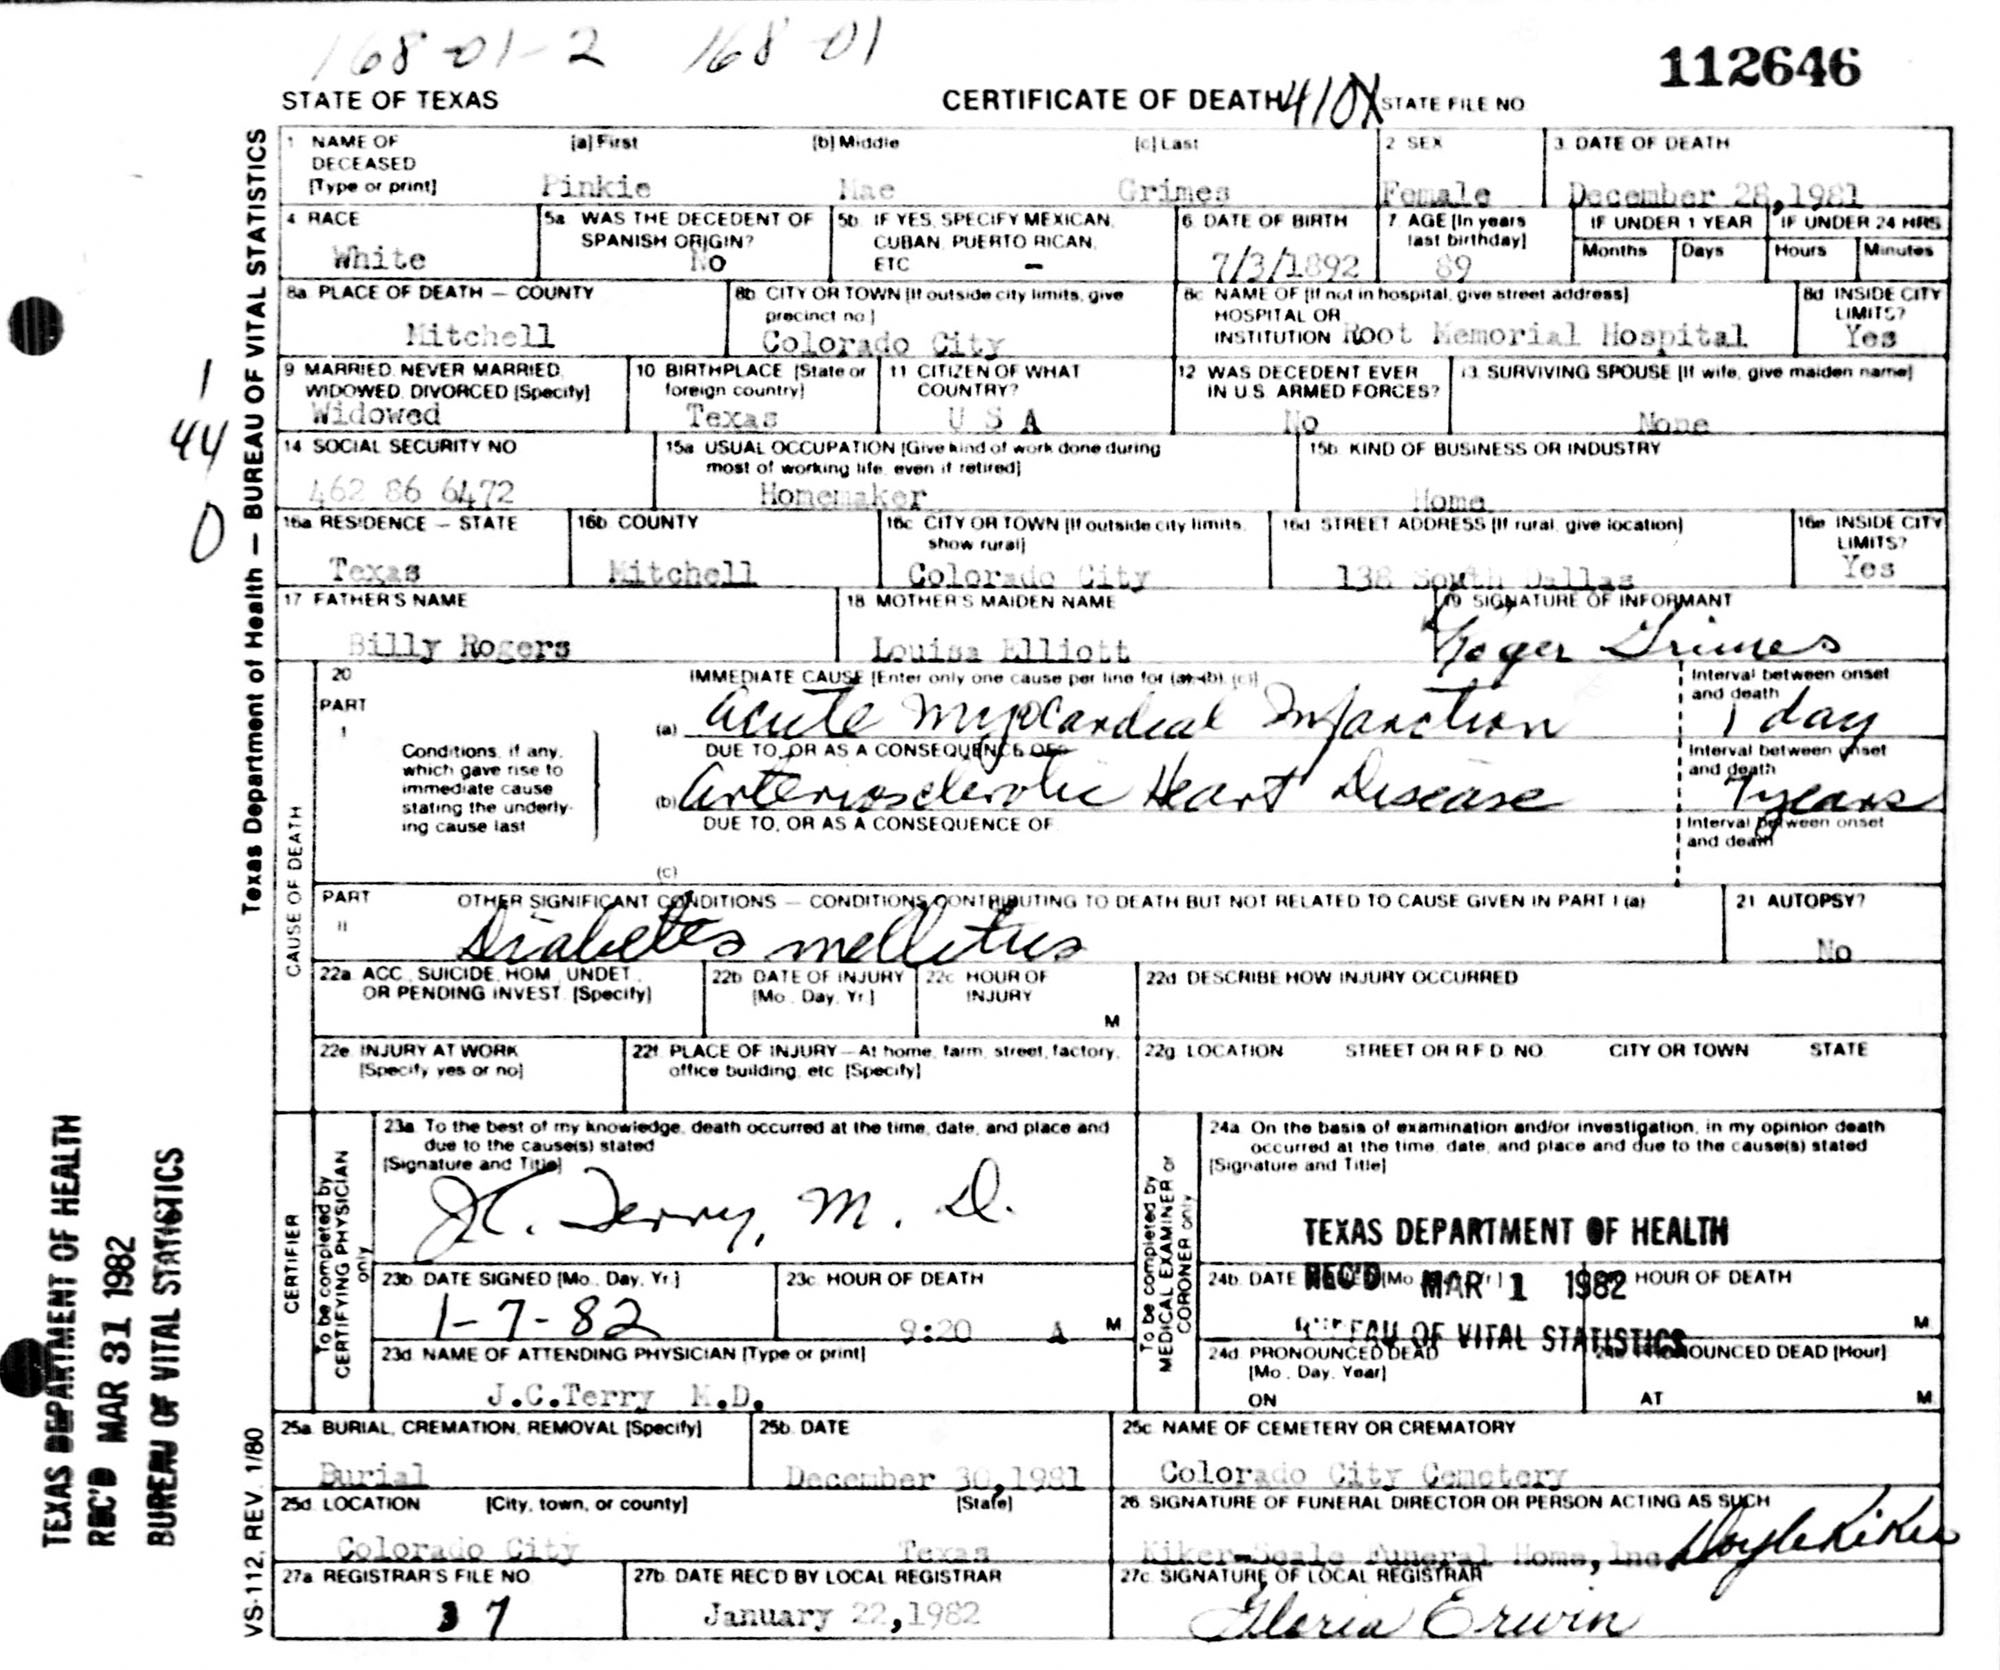 168-01-2 168-01
112646
STATE OF TEXAS CERTIFICATE OF DEATH 410X STATE FILE NO
1 NAME OF DECEASED [Type or print] [a] First [b] Middle [c] Last 2 SEX 3. DATE OF DEATH
Pinkie Mae Grimes Female December 28,1981
4 RACE 5a WAS THE DECEDENT OF SPANISH ORIGIN? 5b IF YES, SPECIFY MEXICAN, CUBAN, PUERTO RICAN, ETC 6 DATE OF BIRTH 7 AGE [In years last birthday] IF UNDER 1 YEAR IF UNDER 24 HRS
Months Days Hours Minutes
White No – 7/3/1892 89
8a PLACE OF DEATH – COUNTY 8b CITY OR TOWN [If outside city limits, give precinct no] 8c NAME OF [If not in hospital, give street address] HOSPITAL OR INSTITUTION 8d INSIDE CITY LIMITS?
Mitchell Colorado City Root Memorial Hospital Yes
9 MARRIED, NEVER MARRIED, WIDOWED, DIVORCED [Specify] 10 BIRTHPLACE [State or foreign country] 11 CITIZEN OF WHAT COUNTRY? 12 WAS DECEDENT EVER IN U.S. ARMED FORCES? 13 SURVIVING SPOUSE [If wife, give maiden name]
Widowed Texas U S A No None
14 SOCIAL SECURITY NO 15a USUAL OCCUPATION [Give kind of work done during most of working life, even if retired] 15b KIND OF BUSINESS OR INDUSTRY
462 86 6472 Homemaker Home
16a RESIDENCE – STATE 16b COUNTY 16c CITY OR TOWN [If outside city limits, show rural] 16d STREET ADDRESS [If rural, give location] 16e INSIDE CITY LIMITS?
Texas Mitchell Colorado City 138 South Dallas Yes
17 FATHER'S NAME 18 MOTHER'S MAIDEN NAME 19 SIGNATURE OF INFORMANT
Billy Rogers Louisa Elliott Roger Grimes
20 PART I IMMEDIATE CAUSE [Enter only one cause per line for (a), (b), (c)] Interval between onset and death
(a) Acute Myocardial Infarction 1 day
Conditions, if any, which gave rise to immediate cause stating the underlying cause last
DUE TO, OR AS A CONSEQUENCE OF Interval between onset and death
(b) Arteriosclerotic Heart Disease 7 years
DUE TO, OR AS A CONSEQUENCE OF Interval between onset and death
(c)
PART II OTHER SIGNIFICANT CONDITIONS – CONDITIONS CONTRIBUTING TO DEATH BUT NOT RELATED TO CAUSE GIVEN IN PART I (a) 21 AUTOPSY?
Diabetes mellitus No
22a ACC, SUICIDE, HOM, UNDET, OR PENDING INVEST. [Specify] 22b DATE OF INJURY [Mo., Day, Yr.] 22c HOUR OF INJURY M 22d DESCRIBE HOW INJURY OCCURRED
22e INJURY AT WORK [Specify yes or no] 22f. PLACE OF INJURY – At home, farm, street, factory, office building, etc [Specify] 22g LOCATION STREET OR R.F.D. NO. CITY OR TOWN STATE
23a To the best of my knowledge, death occurred at the time, date, and place and due to the cause(s) stated [Signature and Title]
J.C. Terry, M. D.
24a On the basis of examination and/or investigation, in my opinion death occurred at the time, date, and place and due to the cause(s) stated [Signature and Title]
TEXAS DEPARTMENT OF HEALTH
REC'D MAR 1 1982
BUREAU OF VITAL STATISTICS
23b. DATE SIGNED [Mo., Day, Yr.] 23c HOUR OF DEATH 24b DATE HOUR OF DEATH M
1-7-82 9:20 A M
23d. NAME OF ATTENDING PHYSICIAN [Type or print] 24d PRONOUNCED DEAD [Mo., Day, Year] PRONOUNCED DEAD [Hour]
J.C.Terry M.D. ON AT M
25a BURIAL, CREMATION, REMOVAL [Specify] 25b DATE 25c NAME OF CEMETERY OR CREMATORY
Burial December 30,1981 Colorado City Cemetery
25d LOCATION [City, town, or county] [State] 26 SIGNATURE OF FUNERAL DIRECTOR OR PERSON ACTING AS SUCH
Colorado City Texas Kiker-Seale Funeral Home, Inc Doyle Kiker
27a REGISTRAR'S FILE NO 27b. DATE REC'D BY LOCAL REGISTRAR 27c. SIGNATURE OF LOCAL REGISTRAR
37 January 22,1982 Gloria Erwin
Texas Department of Health – BUREAU OF VITAL STATISTICS
CAUSE OF DEATH
CERTIFIER
To be completed by CERTIFYING PHYSICIAN only
To be completed by MEDICAL EXAMINER or CORONER only
VS-112, REV. 1/80
1
44
0
TEXAS DEPARTMENT OF HEALTH
REC'D MAR 31 1982
BUREAU OF VITAL STATISTICS